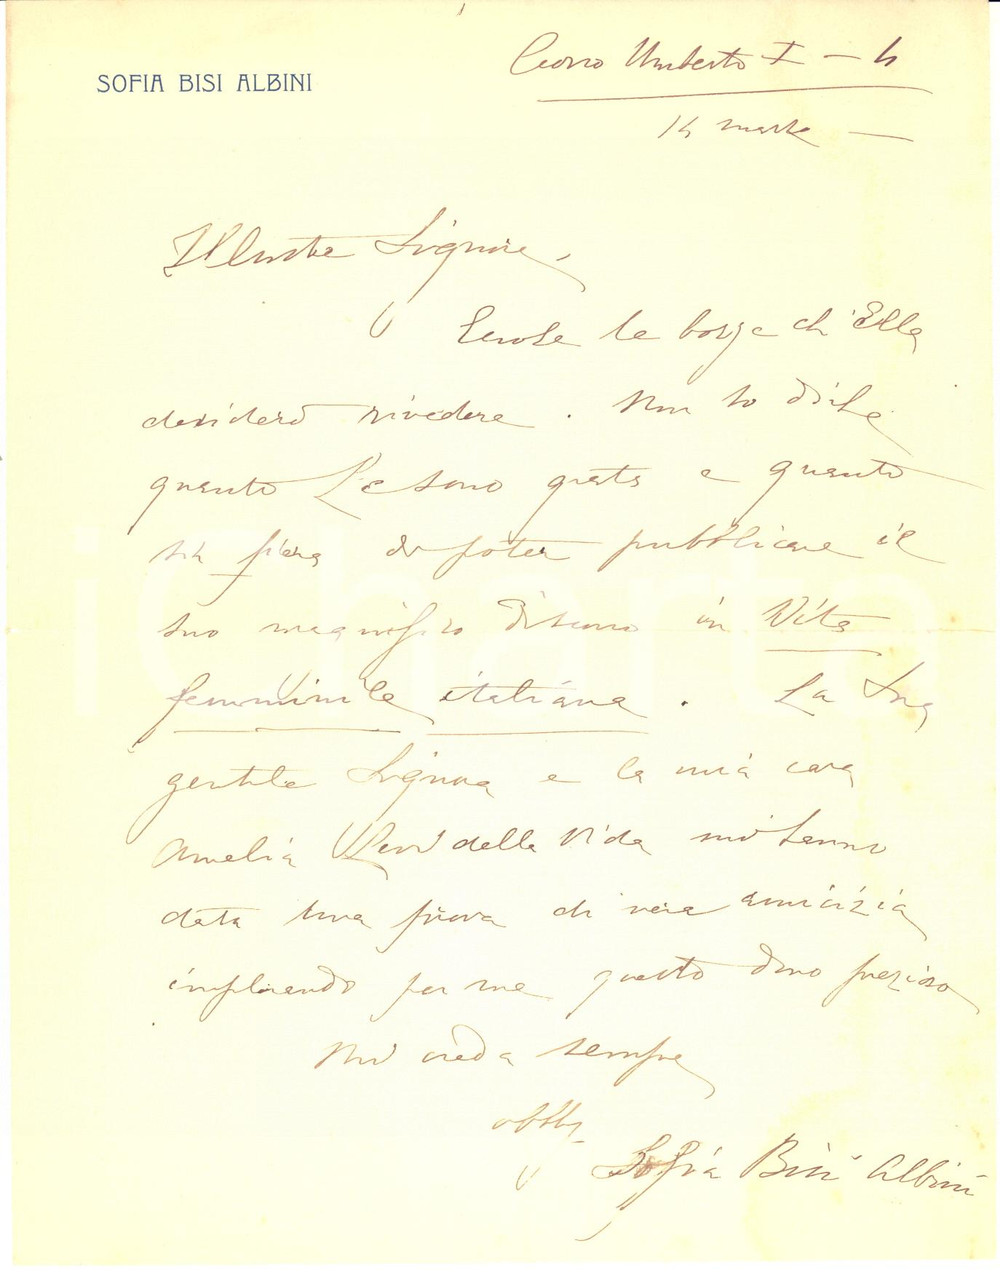 SOFIA BISI ALBINI
Corso Umberto I – 4
14 marzo
Illustre Signore,
Eccole le bozze ch'Ella
desiderò rivedere. Non so dirle
quanto Le sono grata e quanto
sia fiera di poter pubblicare il
suo magnifico discorso in Vita
femminile italiana. La Sua
gentile Signora e la mia cara
Amelia Levi della Vida mi hanno
data una prova di vera amicizia
implorando per me questo dono prezioso
Mi creda sempre
obbl.
Sofia Bisi Albini
iCharta